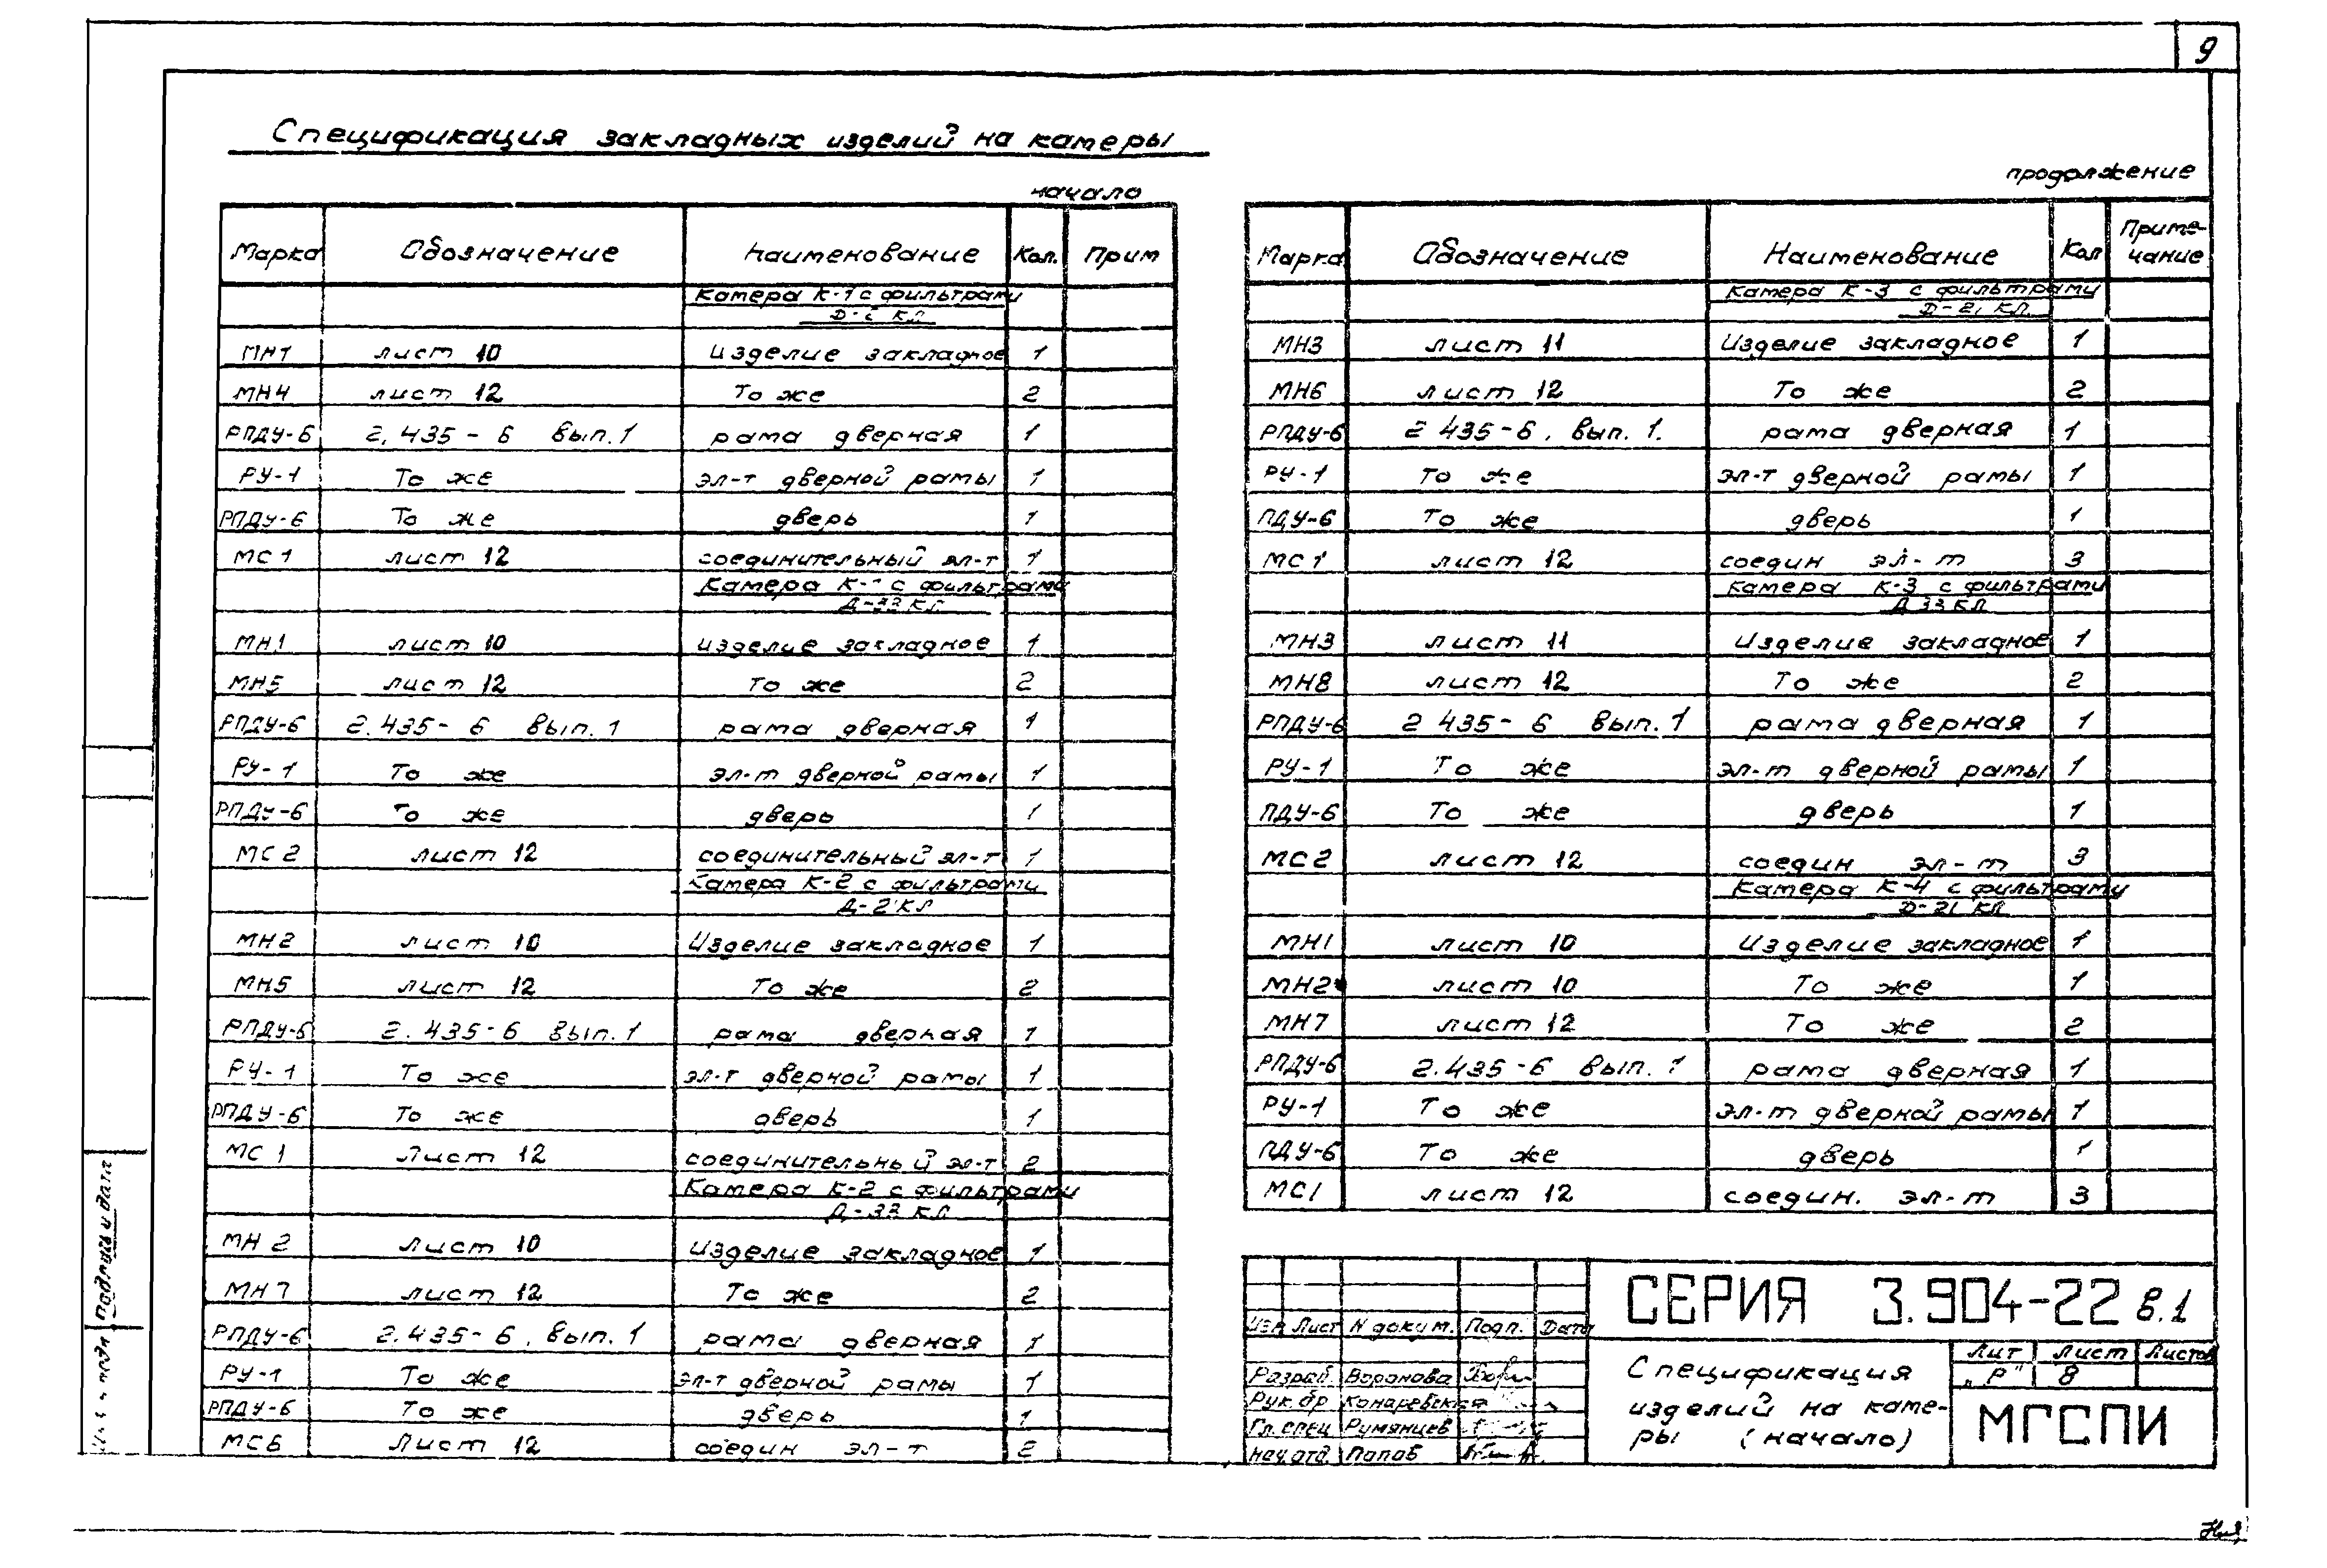 9
Спецификация закладных изделий на камеры
начало
Марка Обозначение Наименование Кол. Прим
Камера К-1 с фильтрами
КЛ
МН1 лист 10 Изделие закладное 1
МН4 лист 12 То же 2
РПДУ-6 2.435-6 вып.1 рама дверная 1
РУ-1 То же эл-т дверной рамы 1
РПДУ-6 То же дверь 1
МС1 лист 12 соединительный эл-т 1
Камера с фильтрами
Д-33 КЛ
МН1 лист 10 изделие закладное 1
МН5 лист 12 то же 2
РПДУ-6 2.435-6 вып.1 рама дверная 1
РУ-1 То же эл-т дверной рамы 1
РПДУ-6 То же дверь 1
МС2 лист 12 соединительный эл-т 1
Камера К-2 с фильтрами
Д-21 КЛ
МН2 лист 10 Изделие закладное 1
МН5 лист 12 То же 2
РПДУ-6 2.435-6 вып.1 рама дверная 1
РУ-1 То же эл-т дверной рамы 1
РПДУ-6 То же дверь 1
МС1 Лист 12 соединительный эл-т 2
Камера К-2 с фильтрами
Д-33 КЛ
МН2 лист 10 изделие закладное 1
МН7 лист 12 То же 2
РПДУ-6 2.435-6, вып.1 рама дверная 1
РУ-1 То же эл-т дверной рамы 1
РПДУ-6 То же дверь 1
МС6 Лист 12 соедин эл-т 2
продолжение
Марка Обозначение Наименование Кол Приме-
чание
Камера К-3 с фильтрами
Д-21 КЛ.
МН3 лист 11 Изделие закладное 1
МН6 лист 12 То же 2
РПДУ-6 2 435-6, вып. 1. рама дверная 1
РУ-1 То же эл-т дверной рамы 1
ПДУ-6 То же дверь 1
МС1 лист 12 соедин эл-т 3
Камера К-3 с фильтрами
Д 33 КЛ
МН3 лист 11 Изделие закладное 1
МН8 лист 12 То же 2
РПДУ-6 2 435-6 вып.1 рама дверная 1
РУ-1 То же эл-т дверной рамы 1
ПДУ-6 То же дверь 1
МС2 лист 12 соедин эл-т 3
Камера К-4 с фильтрами
Д-21 КЛ
МН1 лист 10 Изделие закладное 1
МН2 лист 10 То же 1
МН7 лист 12 То же 2
РПДУ-6 2.435-6 вып. 1 рама дверная 1
РУ-1 То же эл-т дверной рамы 1
ПДУ-6 То же дверь 1
МС1 лист 12 соедин. эл-т 3
СЕРИЯ 3.904-22 в.1
Изм Лист N докум. Подп. Дата
Разраб. Воронова
Рук.бр Конаревская
Гл.спец Румянцев
Нач.отд. Попов
Спецификация
изделий на каме-
ры (начало)
Лит Лист Листов
„Р" 8
МГСПИ
Подпись и дата
подл